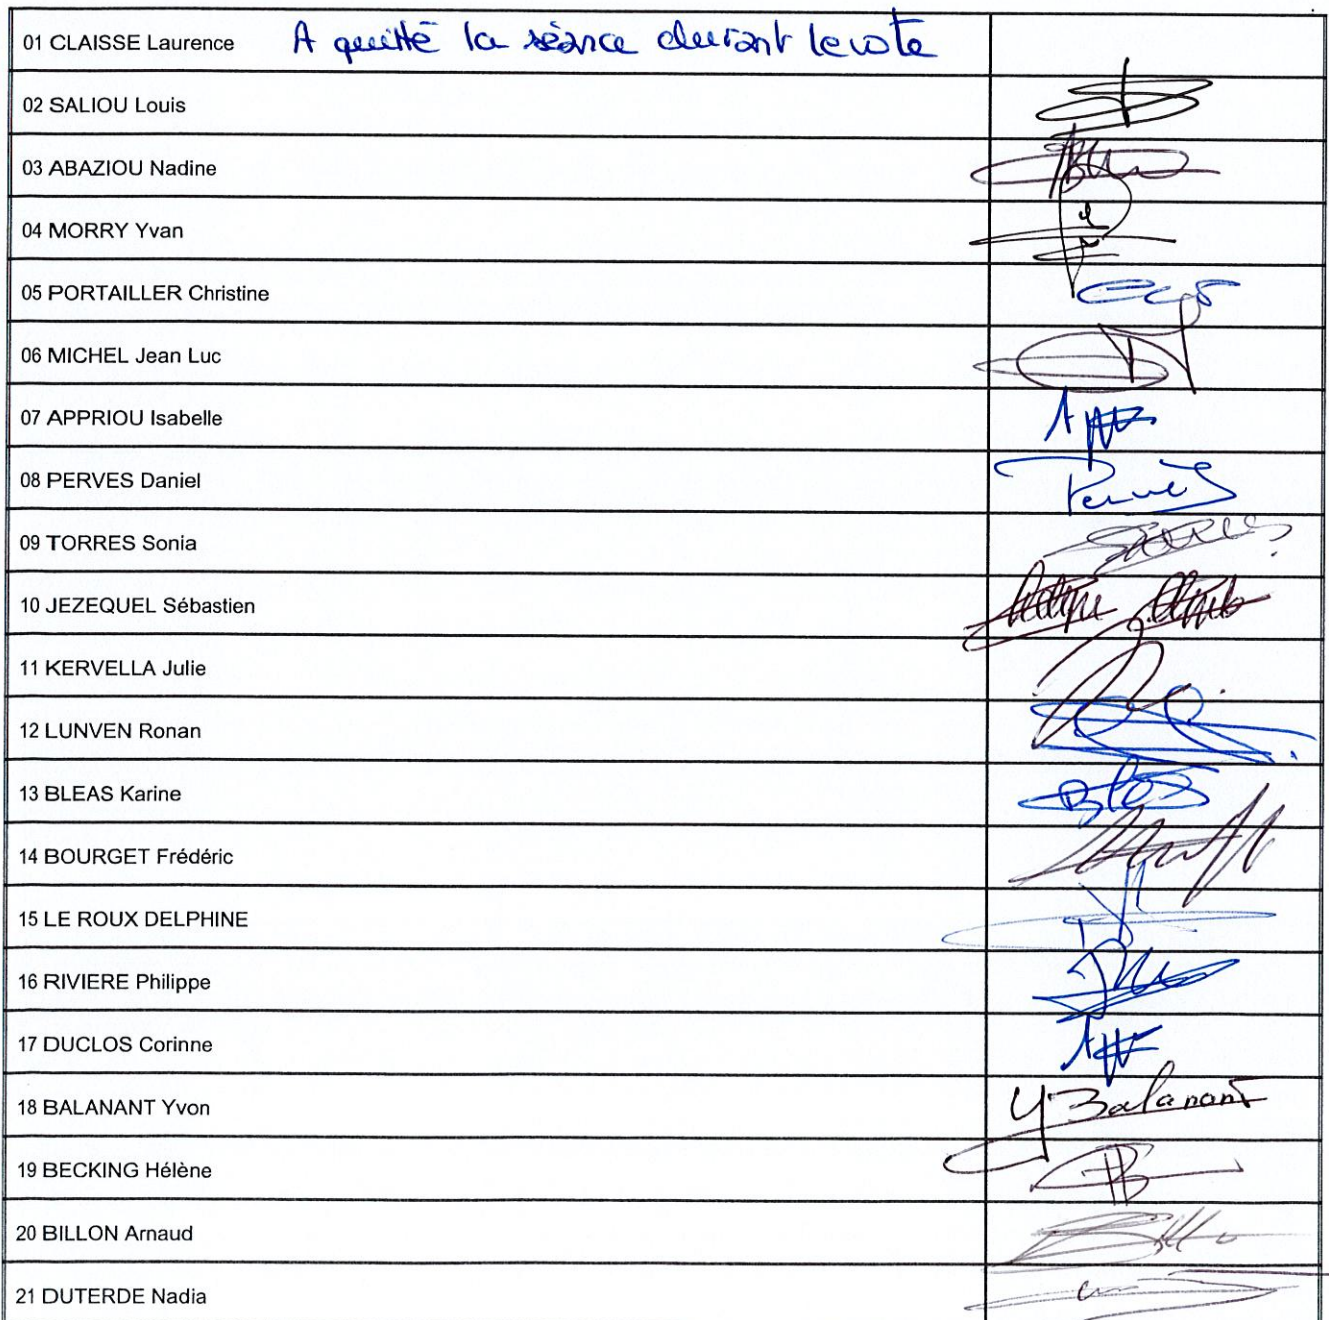 01 CLAISSE Laurence A quitté la séance durant le vote
02 SALIOU Louis
03 ABAZIOU Nadine
04 MORRY Yvan
05 PORTAILLER Christine
06 MICHEL Jean Luc
07 APPRIOU Isabelle
08 PERVES Daniel
09 TORRES Sonia
10 JEZEQUEL Sébastien
11 KERVELLA Julie
12 LUNVEN Ronan
13 BLEAS Karine
14 BOURGET Frédéric
15 LE ROUX DELPHINE
16 RIVIERE Philippe
17 DUCLOS Corinne
18 BALANANT Yvon Y Balanant
19 BECKING Hélène
20 BILLON Arnaud
21 DUTERDE Nadia